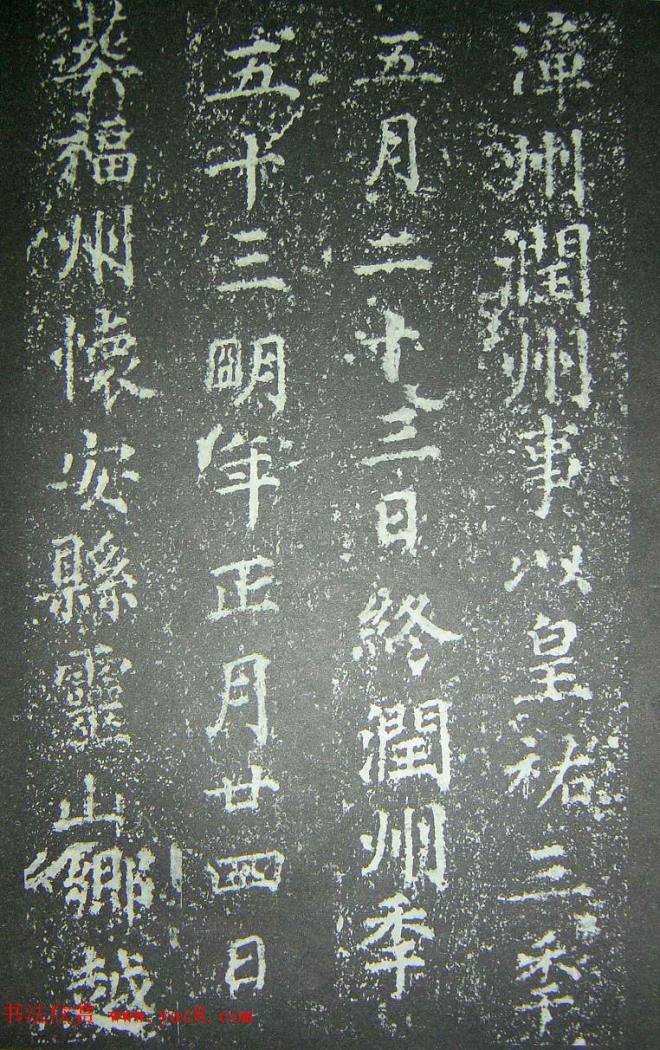 漳州潤州事以皇祐三季
五月二十三日終潤州季
五十三明年正月廿四日
葬福州懷安縣靈山鄉越
书法欣赏 www.yac8.com